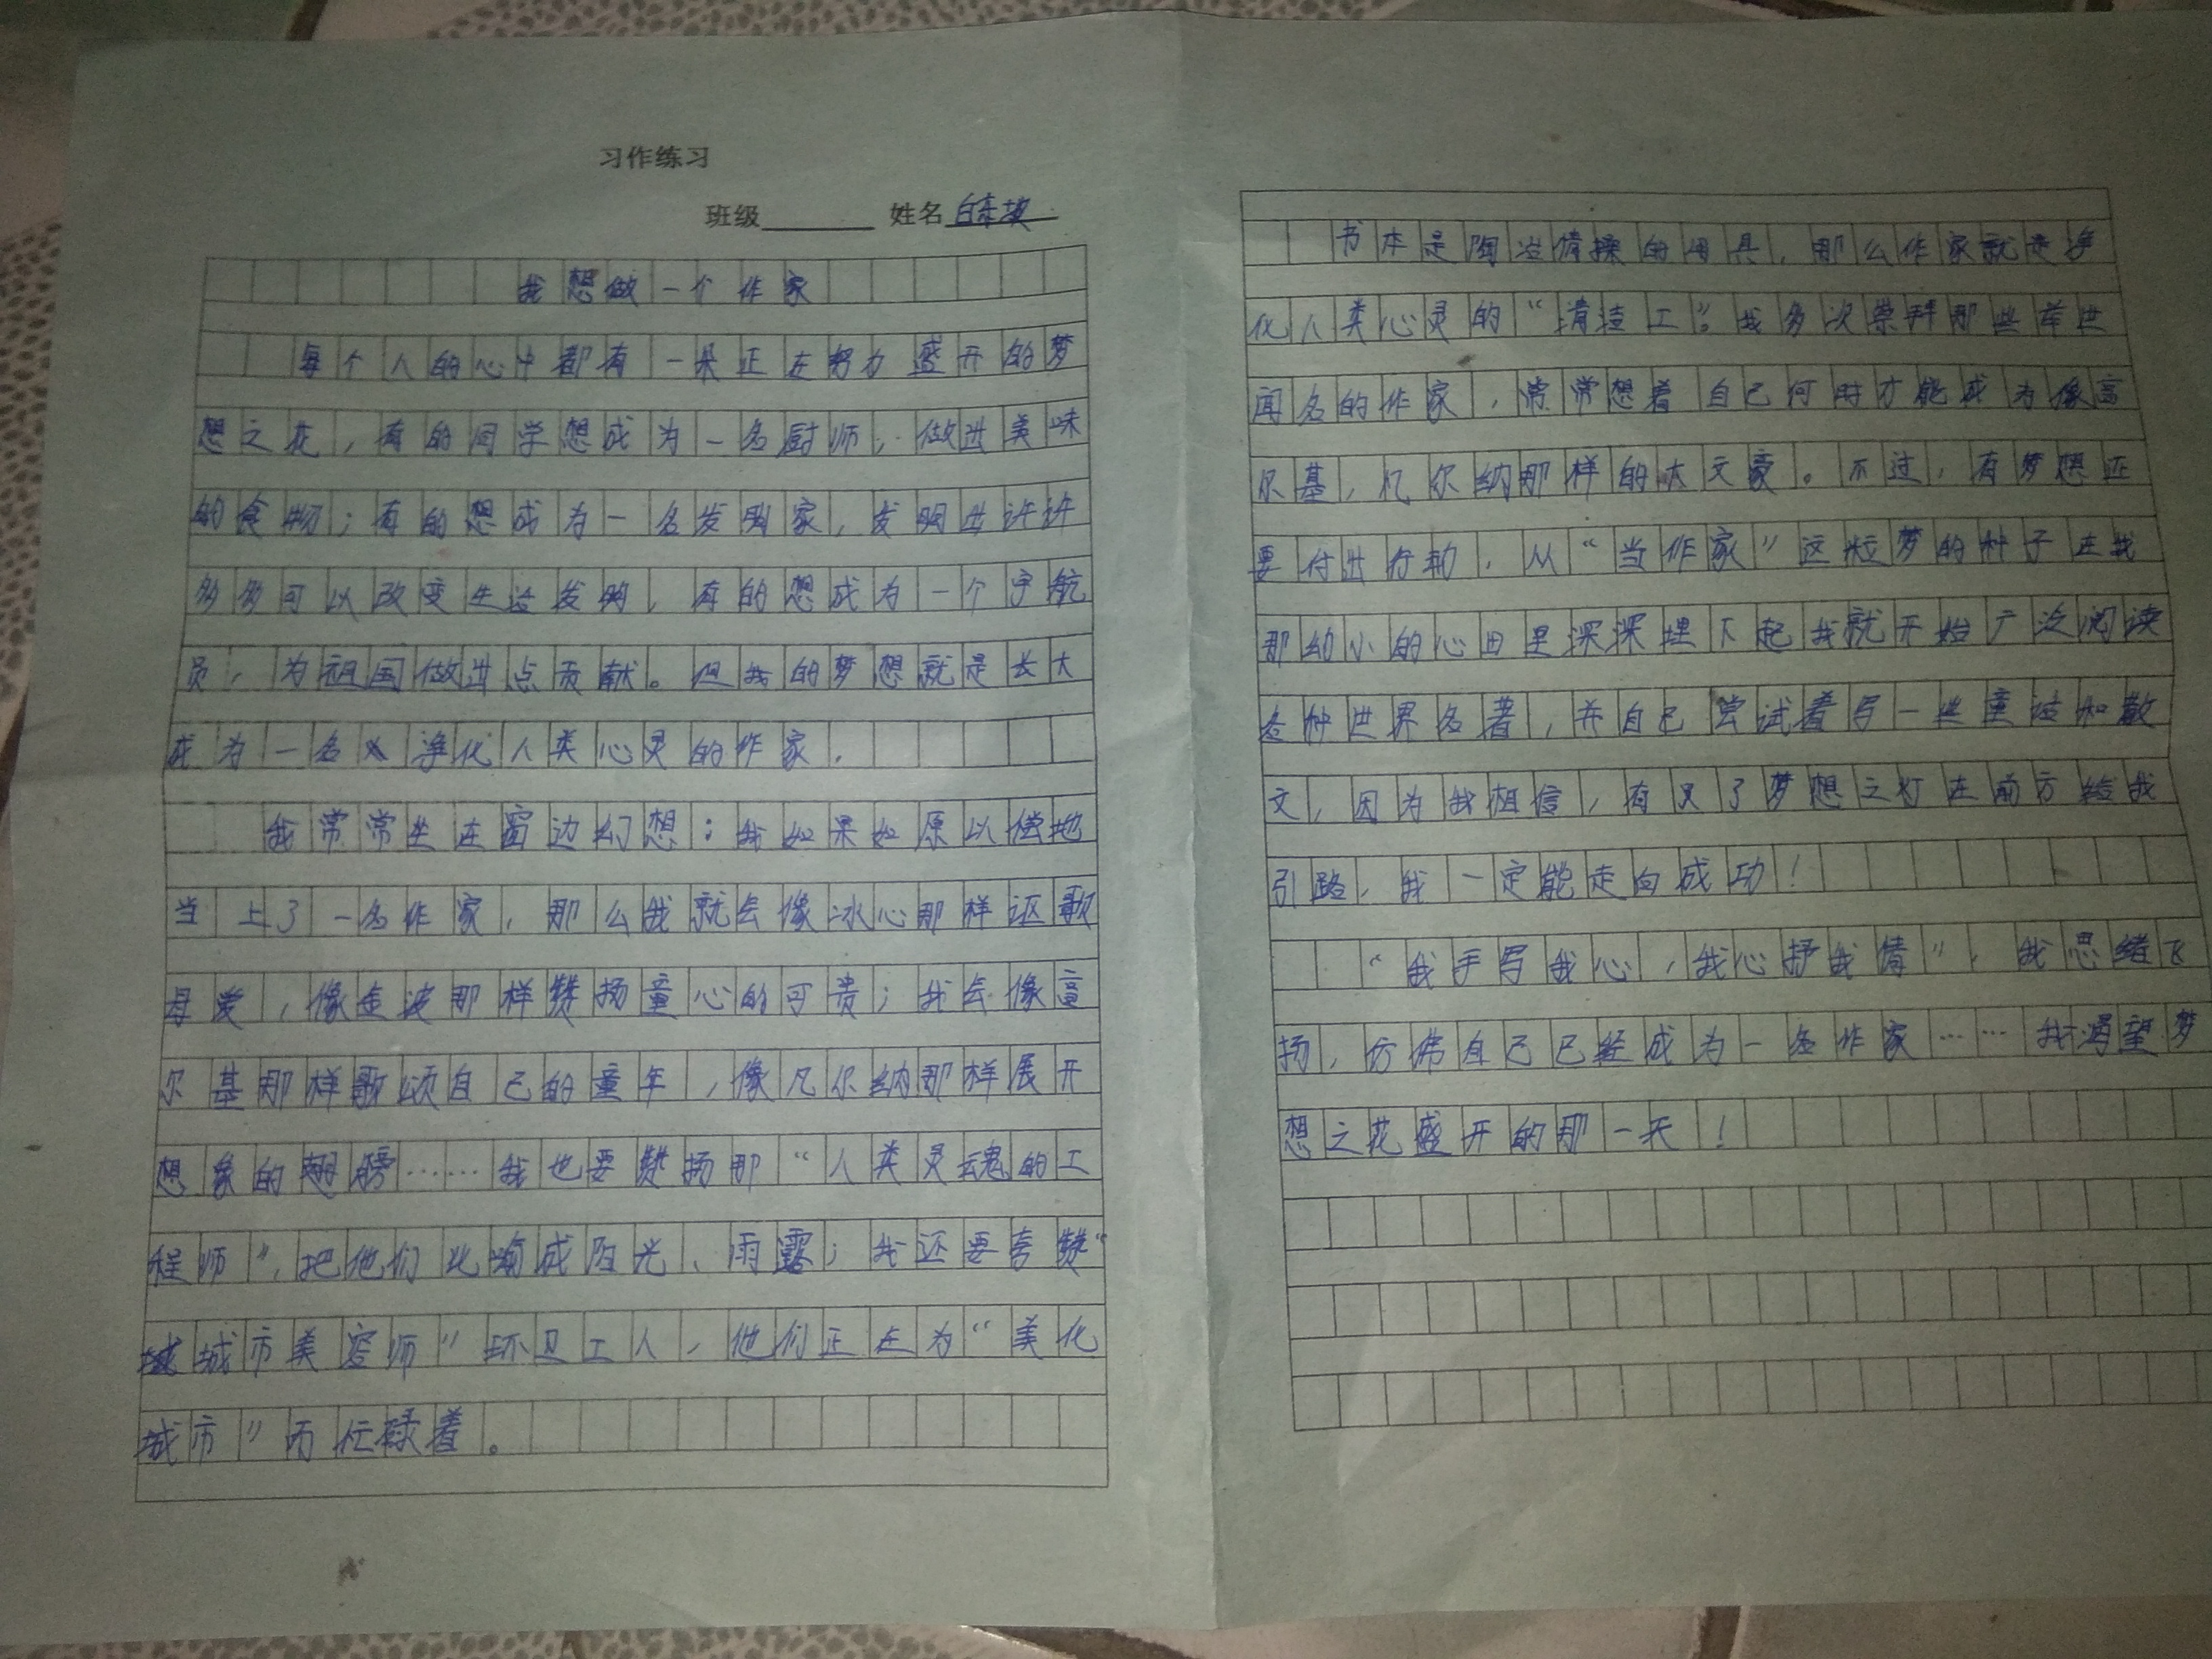 习作练习
班级 姓名
我想做一个作家
每个人的心中都有一朵正在努力盛开的梦
想之花，有的同学想成为一名厨师，做出美味
的食物；有的想成为一名发明家，发明出许许
多多可以改变生活发明，有的想成为一个宇航
员，为祖国做出点贡献。但我的梦想就是长大
成为一名净化人类心灵的作家.
我常常坐在窗边幻想：我如果如原以偿地
当上了一名作家，那么我就会像冰心那样讴歌
母爱，像金波那样赞扬童心的可贵；我会像高
尔基那样歌颂自己的童年，像凡尔纳那样展开
想象的翅膀……我也要赞扬那“人类灵魂的工
程师”，把他们比喻成阳光、雨露；我还要夸赞“
城市美容师”环卫工人，他们正在为“美化
城市”而忙碌着。
书本是陶冶情操的用具，那么作家就是净
化人类心灵的“清洁工”。我多次崇拜那些举世
闻名的作家，常常想着自己何时才能成为像高
尔基，凡尔纳那样的大文豪。不过，有梦想还
要付出行动，从“当作家”这粒梦的种子在我
那幼小的心田里深深埋下起我就开始广泛阅读
各种世界名著，并自己尝试着写一些童话和散
文，因为我相信，有只了梦想之灯在前方给我
引路，我一定能走向成功！
“我手写我心，我心抒我情”，我思绪飞
扬，仿佛自己已经成为一名作家……我渴望梦
想之花盛开的那一天！